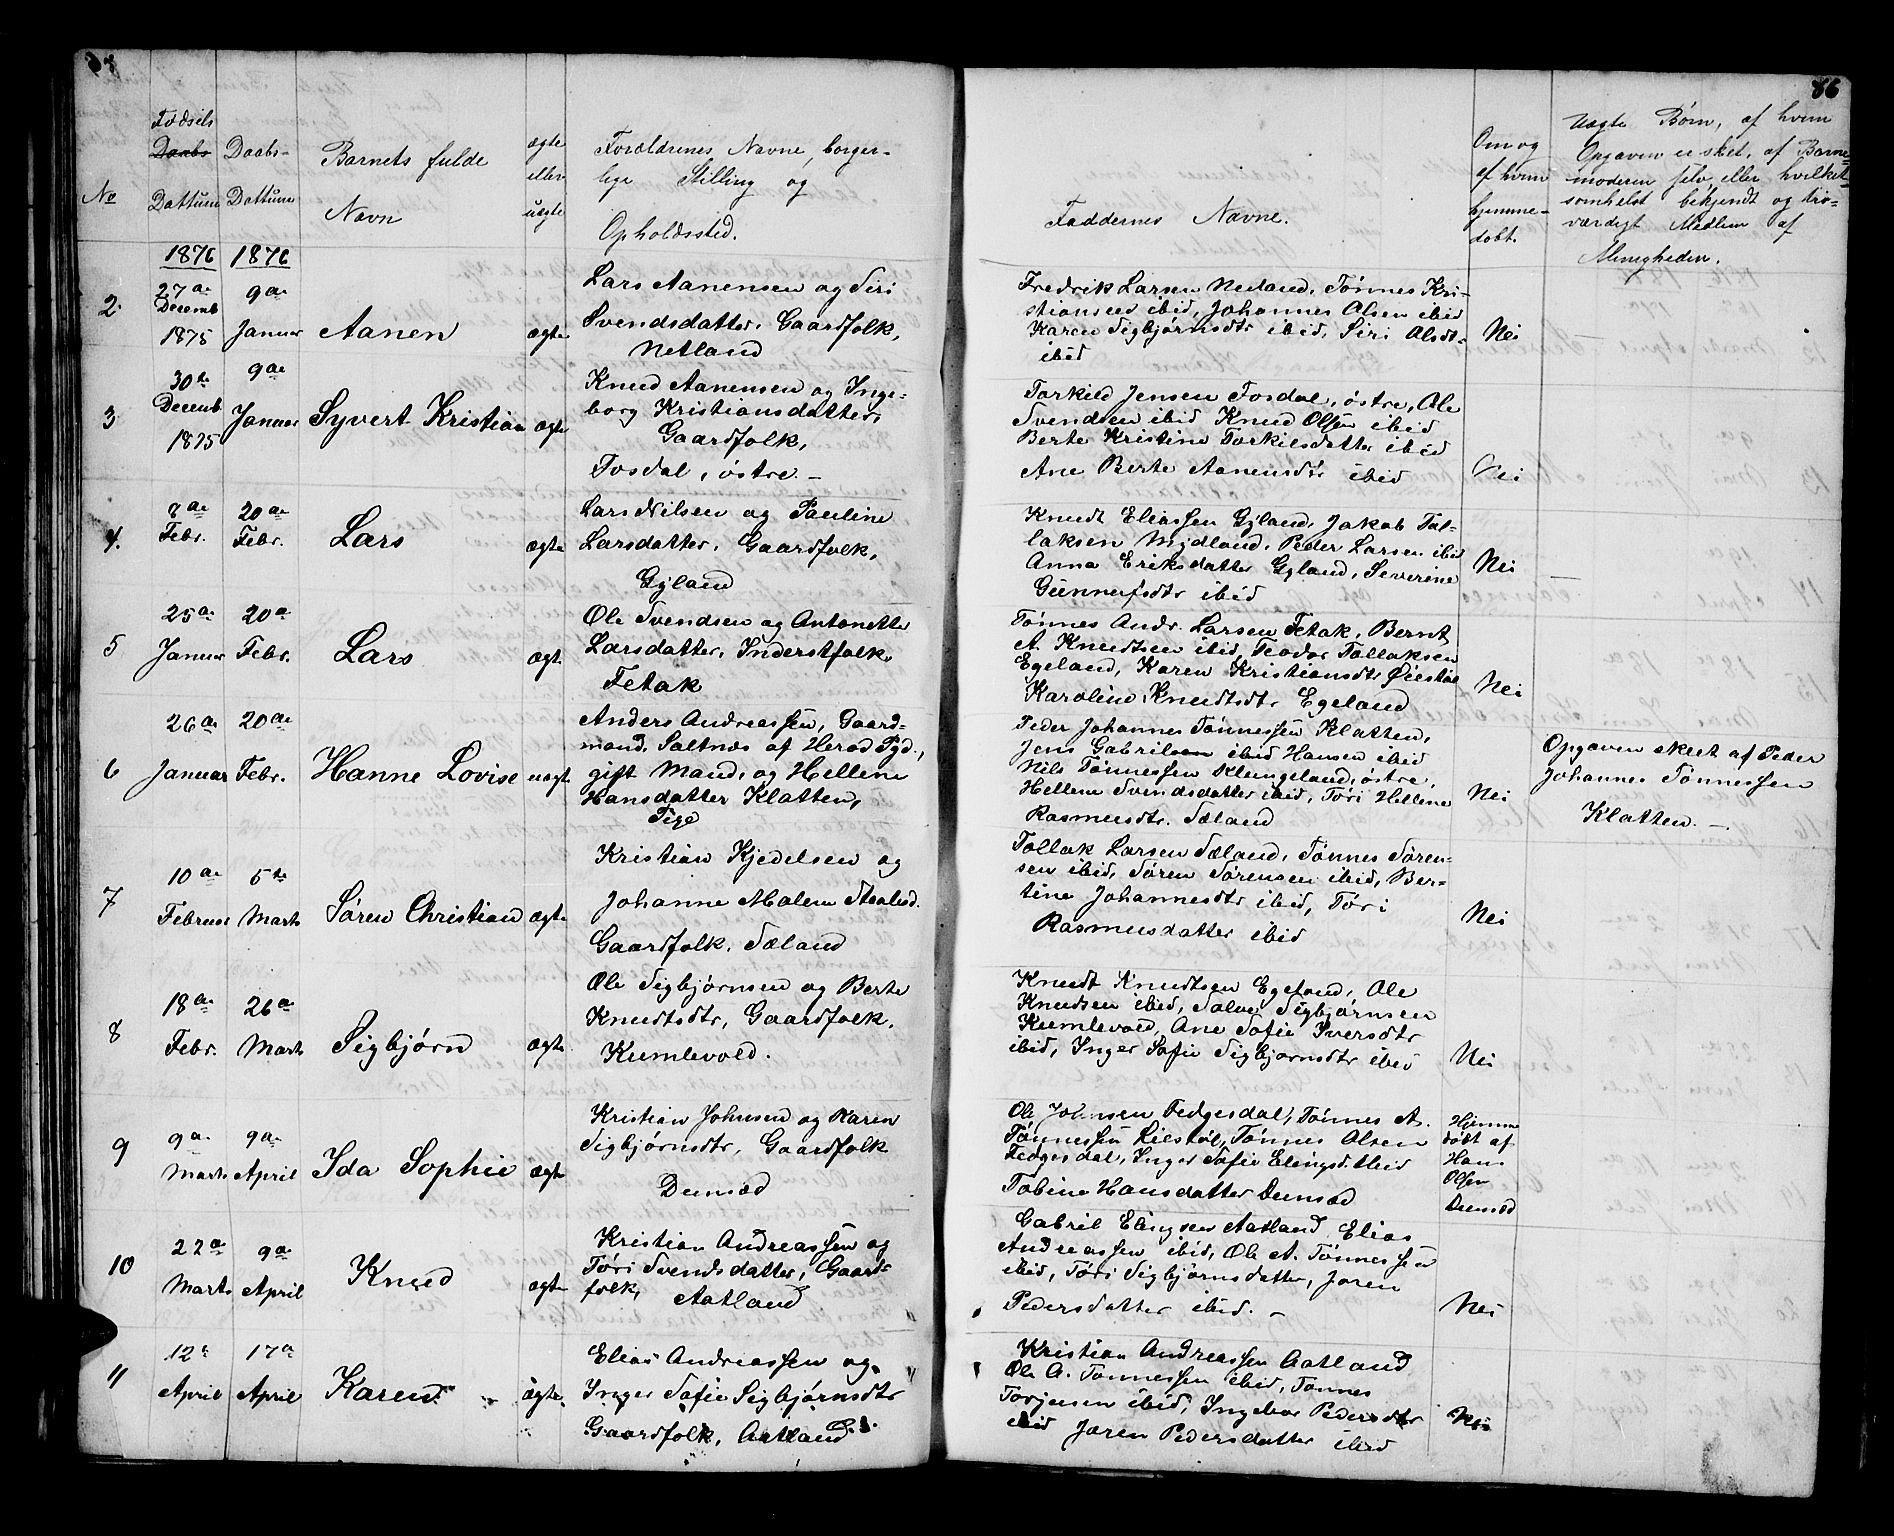 86
Fødsels
Daabs Daabs-
No Dattum Dattum
Barnets fulde
Navn
ægte
eller
uægte
Forældrenes Navne, borger-
lige Stilling og
Opholdssted.
Faddernes Navne.
Om og
af hvem
hjemme-
døbt.
Uægte Børn, af hvem
Opgaven er skeet, af Barne-
moderen selv, eller hvilket-
somhelst bekjendt og tro-
værdigt Medlem af
Menigheden.
1876 1876
2. 27de Decemb 1875
9de Januar
Aanen
ægte
Lars Aanensen og Siri
Svendsdatter, Gaardfolk,
Netland
Fredrik Larsen Netland, Tønnes Kri-
stiansen ibid, Johannes Olsen ibid
Karen Sigbjørnsdtr ibid, Siri Olsdt-
ibid
Nei
3 30te Decemb 1875
9de Januar
Syvert Kristian
ægte
Knud Aanensen og Inge-
borg Kristiansdatter,
Gaardfolk,
Fosdal, østre.-
Torkild Jensen Fosdal, østre, Ole
Svendsen ibid Knud Olsen ibid
Berte Kristine Torkilsdatter ibid
Ane Berte Aanensdtr ibid
Nei
4. 8de Febr.
20de Febr.
Lars
ægte
Lars Nilsen og Pauline
Larsdatter, Gaardfolk,
Gyland
Knudt Eliassen Gyland, Jakob Tol-
laksen Mydland, Peder Larsen ibid
Anna Eriksdatter Gyland, Severine
Gunnufsdtr ibid
Nei
5 25de Januar
20de Febr.
Lars
ægt.
Ole Svendsen og Antonette
Larsdatter, Inderstfolk,
Fetak
Tønnes Andr. Larsen Fetak, Bernt
A. Knudtsen ibid, Teodor Tollaksen
Egeland, Karen Kristiansdtr Øiestøl
Karoline Knudtsdtr Egeland
Nei
6 26de Januar
20de Febr.
Hanne Lovise
uægt.
Anders Andreassen, Gaard-
mand, Saltnæs af Herad Pgd.,
gift Mand, og Hellene
Hansdatter Klatten,
Pige
Peder Johannes Tønnessen Klatten,
Jens Gabrielsen ibid Hansen ibid
Nils Tønnessen Klungeland, østre,
Hellene Svendsdatter ibid, Tøri Hellene
Rasmusdtr. Sæland
Nei
Opgaven skeet af Peder
Johannes Tønnessen
Klatten.-
7 10de Februar
5te Marts
Søren Christian
ægte
Kristian Kjedelsen og
Johanne Malene
Gaardfolk, Sæland
Tollak Larsen Sæland, Tønnes Søren-
sen ibid, Søren Sørensen ibid, Ber-
tine Johannesdtr ibid, Tøri
Rasmusdatter ibid
Nei
8 18de Febr.
26de Marts
Sigbjørn
ægte
Ole Sigbjørnsen og Berte
Knudtsdtr, Gaardfolk,
Kumlevold.
Knudt Knudtsen Egeland, Ole
Knudsen ibid, Salve Sigbjørnsen
Kumlevold, Ane Sofie Iversdtr
ibid, Inger Sofie Sigbjørnsdtr ibid
Nei
9 9de Marts
9de April
Ida Sophie
ægte
Kristian Johnsen og Karen
Sigbjørnsdtr, Gaardfolk
Dunsæd
Ole Johnsen Fedgesdal, Tønnes A.
Tønnessen Liestøl, Tønnes Olsen
Fedgesdal, Inger Sofie Elingsd. ibid
Tobine Hansdatter Dunsæd
Hjemme
døbt af
Hans
Olsen
Dunsæd
10 22de Marts
9de April
Knud
ægte
Kristian Andreassen og
Tøri Svendsdatter, Gaard-
folk, Aatland
Gabriel Elingsen Aatland Elias
Andreassen ibid, Ole A. Tønnessen
ibid, Tøri Sigbjørnsdatter, Joren
Pedersdatter ibid.-
Nei
11 12te April
17de April
Karen
ægte.
Elias Andreassen og
Inger Sofie Sigbjørnsdtr
Gaardfolk, Aatland
Kristian Andreassen Aatland
Ole A. Tønnessen ibid, Tønnes
Torjusen ibid, Ingebor Pedersdtr
ibid Joren Pedersdatter ibid
Nei